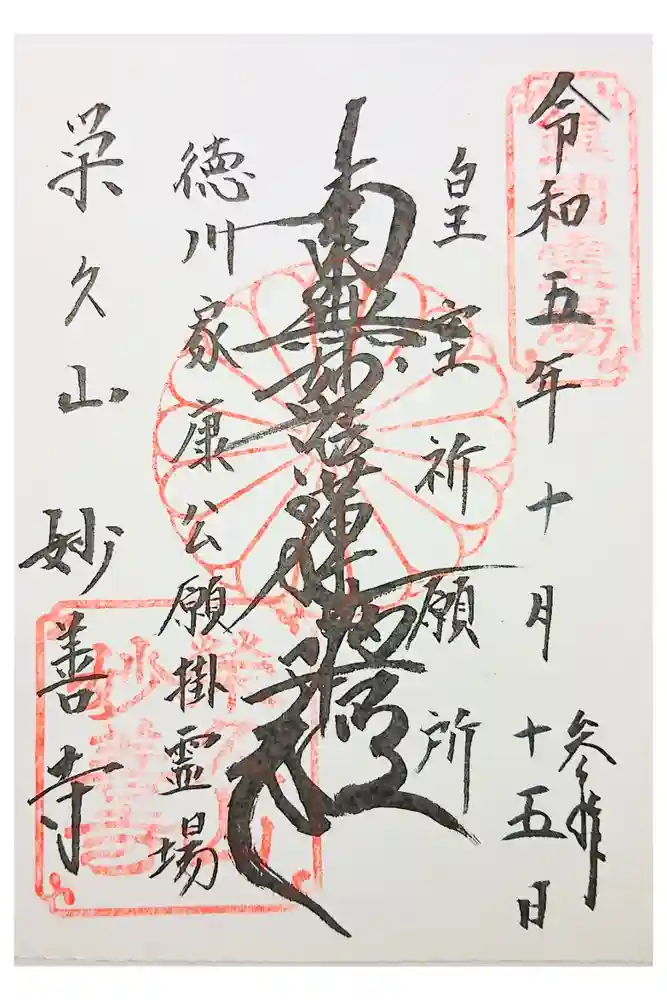 令和五年十月十五日
参拝
皇室祈願所
南無妙法蓮華経
徳川家康公願掛霊場
栄久山 妙善寺
榮久山
妙善寺